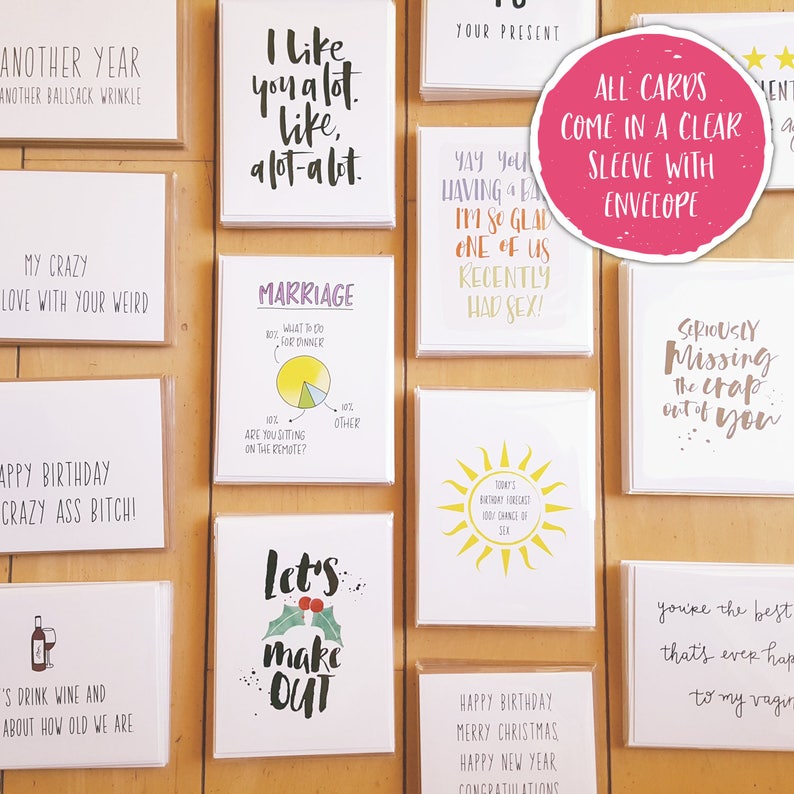 ANOTHER YEAR
ANOTHER BALLSACK WRINKLE
MY CRAZY
LOVE WITH YOUR WEIRD
HAPPY BIRTHDAY
CRAZY ASS BITCH!
DRINK WINE AND
ABOUT HOW OLD WE ARE.
I like
you a lot.
like,
a lot-a lot.
MARRIAGE
WHAT TO DO
80% FOR DINNER
10%
OTHER
10%
ARE YOU SITTING
ON THE REMOTE?
Let's
make
OUT
YOUR PRESENT.
YAY YOU'RE
HAVING A
I'M SO GLAD
ONE OF US
RECENTLY
HAD SEX!
TODAY'S
BIRTHDAY FORECAST:
100% CHANCE OF
SEX
HAPPY BIRTHDAY,
MERRY CHRISTMAS,
HAPPY NEW YEAR
CONGRATULATIONS
ALL CARDS
COME IN A CLEAR
SLEEVE WITH
ENVELOPE
SERIOUSLY
Missing
the crap
out of you
you're the best
that's ever
to my